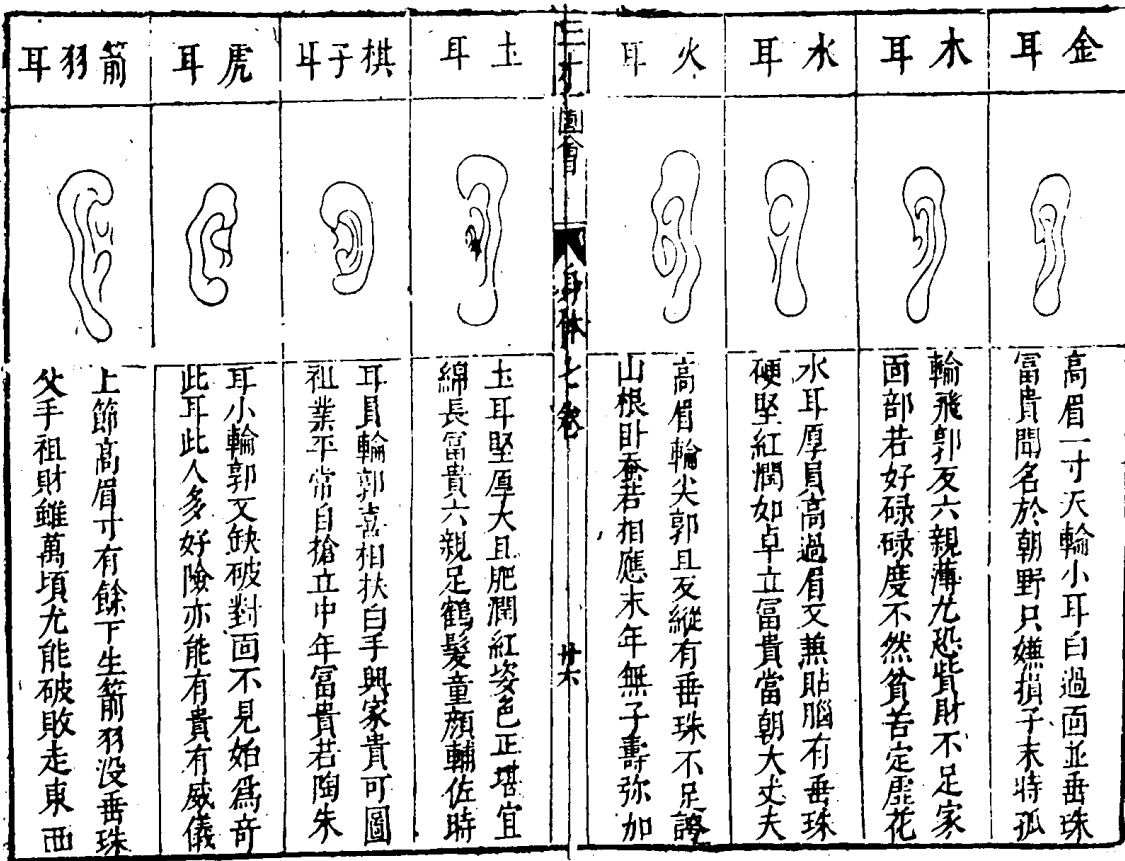 金耳
高眉一寸天輪小耳白過面並垂珠
冨貴聞名於朝野只嫌損子末時孤
木耳
輪飛郭反六親薄尤恐貲財不足家
面部若好碌碌度不然貧苦定虛花
水耳
水耳厚員高過眉又兼貼腦有垂珠
硬堅紅潤如卓立冨貴當朝大丈夫
火耳
高眉輪尖郭且反縱有垂珠不足誇
山根卧蚕若相應末年無子壽弥加
三才圖會
身体七卷
廿六
土耳
土耳堅厚大且肥潤紅姿色正堪宜
綿長冨貴六親足鶴髮童顔輔佐時
棋子耳
耳員輪郭喜相扶白手興家貴可圖
祖業平常自搶立中年冨貴若陶朱
虎耳
耳小輪郭又缺破對面不見始爲奇
此耳此人多好險亦能有貴有威儀
箭羽耳
上節高眉寸有餘下生箭羽没垂珠
父手祖財雖萬頃尤能破敗走東西